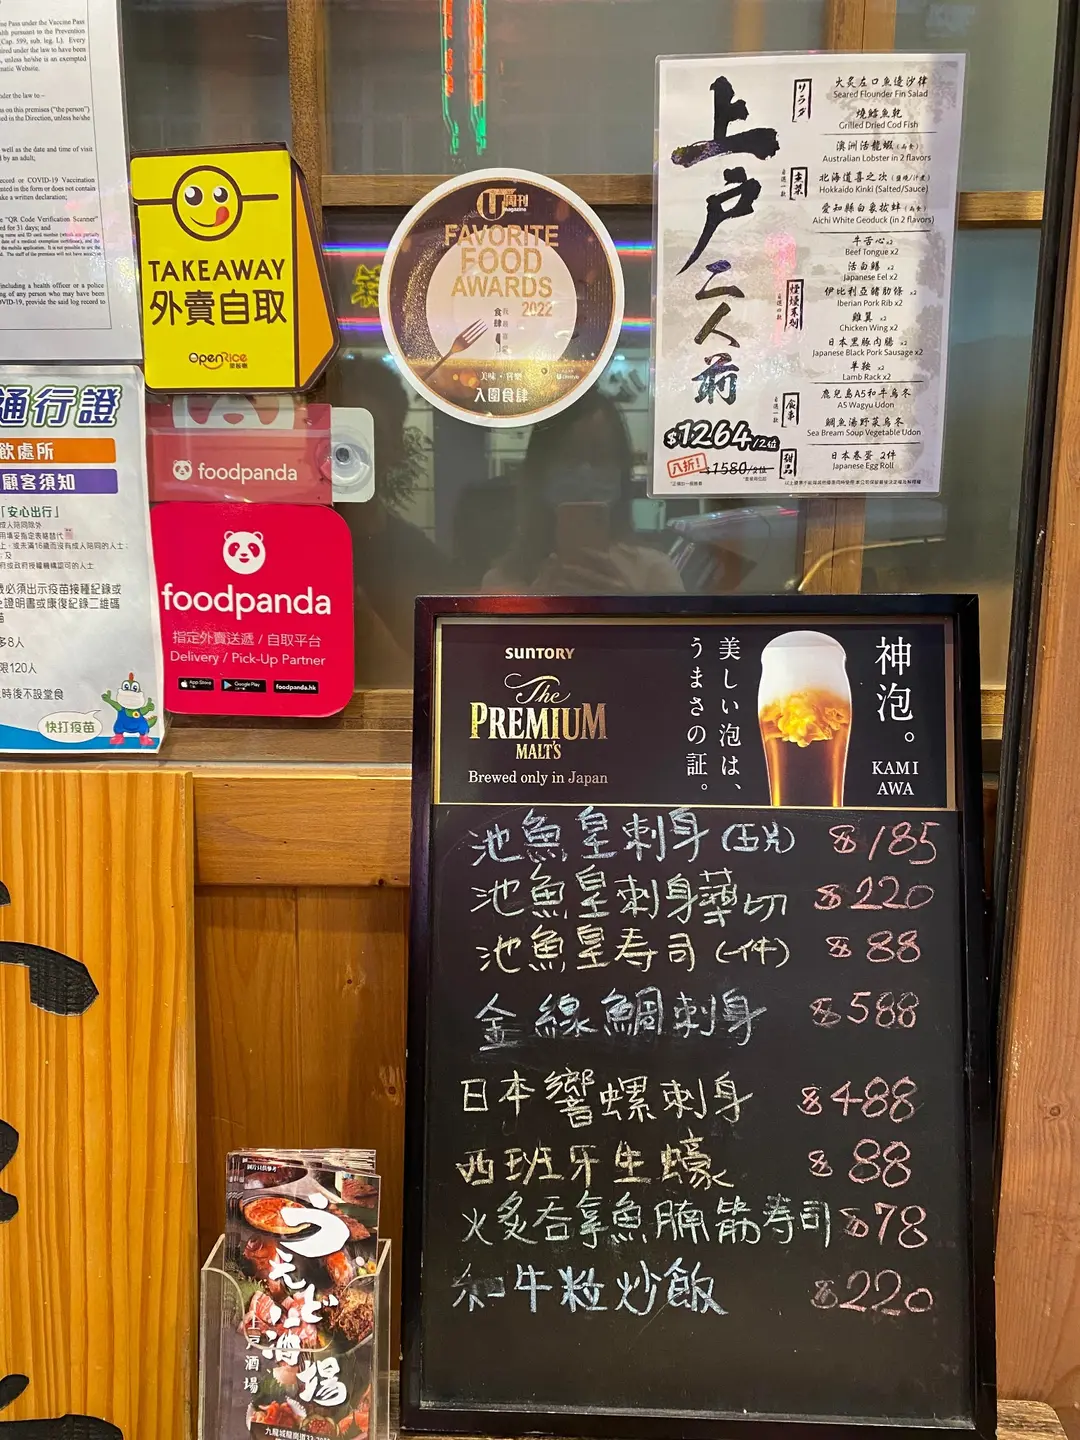 ne Pass under the Vaccine Pass
lth pursuant to the Prevention
(Cap. 599, sub. leg. L). Every
ired under the law to have been
, unless he/she is an exempted
matic Website.
nder the law to –
s on this premises ("the person")
ed in the Direction, unless he/she
well as the date and time of visit
d by an adult;
record or COVID-19 Vaccination
nted in the form or does not contain
ke a written declaration;
e "QR Code Verification Scanner"
d for 31 days; and
including a health officer or a police
ng of any person who may have been
OVID-19, provide the said log record to
TAKEAWAY
外賣自取
OpenRice
通行證
飲處所
顧客須知
「安心出行」
歲必須出示疫苗接種紀錄或
證明書或康復紀錄二維碼
多8人
限120人
時後不設堂食
快打疫苗
foodpanda
foodpanda
指定外賣送遞 / 自取平台
Delivery / Pick-Up Partner
App Store
Google Play
foodpanda.hk
U周刊
magazine
FAVORITE
FOOD
AWARDS
2022
食肆
入圍食肆
上戸二人前
$1264/2位
八折!
$1580/2位
サラダ
火炙左口魚邊沙律
Seared Flounder Fin Salad
燒鱈魚乾
Grilled Dried Cod Fish
主菜
澳洲活龍蝦
Australian Lobster in 2 flavors
北海道喜之次
Hokkaido Kinki (Salted/Sauce)
愛知縣白象拔蚌
Aichi White Geoduck (in 2 flavors)
牛舌心x2
Beef Tongue x2
活白鱔 x2
Japanese Eel x2
伊比利亞豬肋條 x2
Iberian Pork Rib x2
雞翼 x2
Chicken Wing x2
日本黑豚肉腸 x2
Japanese Black Pork Sausage x2
羊鞍 x2
Lamb Rack x2
食事
鹿兒島A5和牛烏冬
A5 Wagyu Udon
鯛魚湯野菜烏冬
Sea Bream Soup Vegetable Udon
甜品
日本卷蛋 2件
Japanese Egg Roll
SUNTORY
The
PREMIUM
MALT'S
Brewed only in Japan
美しい泡は、
うまさの証。
神泡。
KAMI
AWA
池魚皇刺身(五片) $185
池魚皇刺身薄切 $220
池魚皇寿司(一件) $88
金線鯛刺身 $588
日本響螺刺身 $488
西班牙生蠔 $88
火炙吞拿魚腩筋寿司 $78
和牛粒炒飯 $220
うえど酒場
上戸酒場